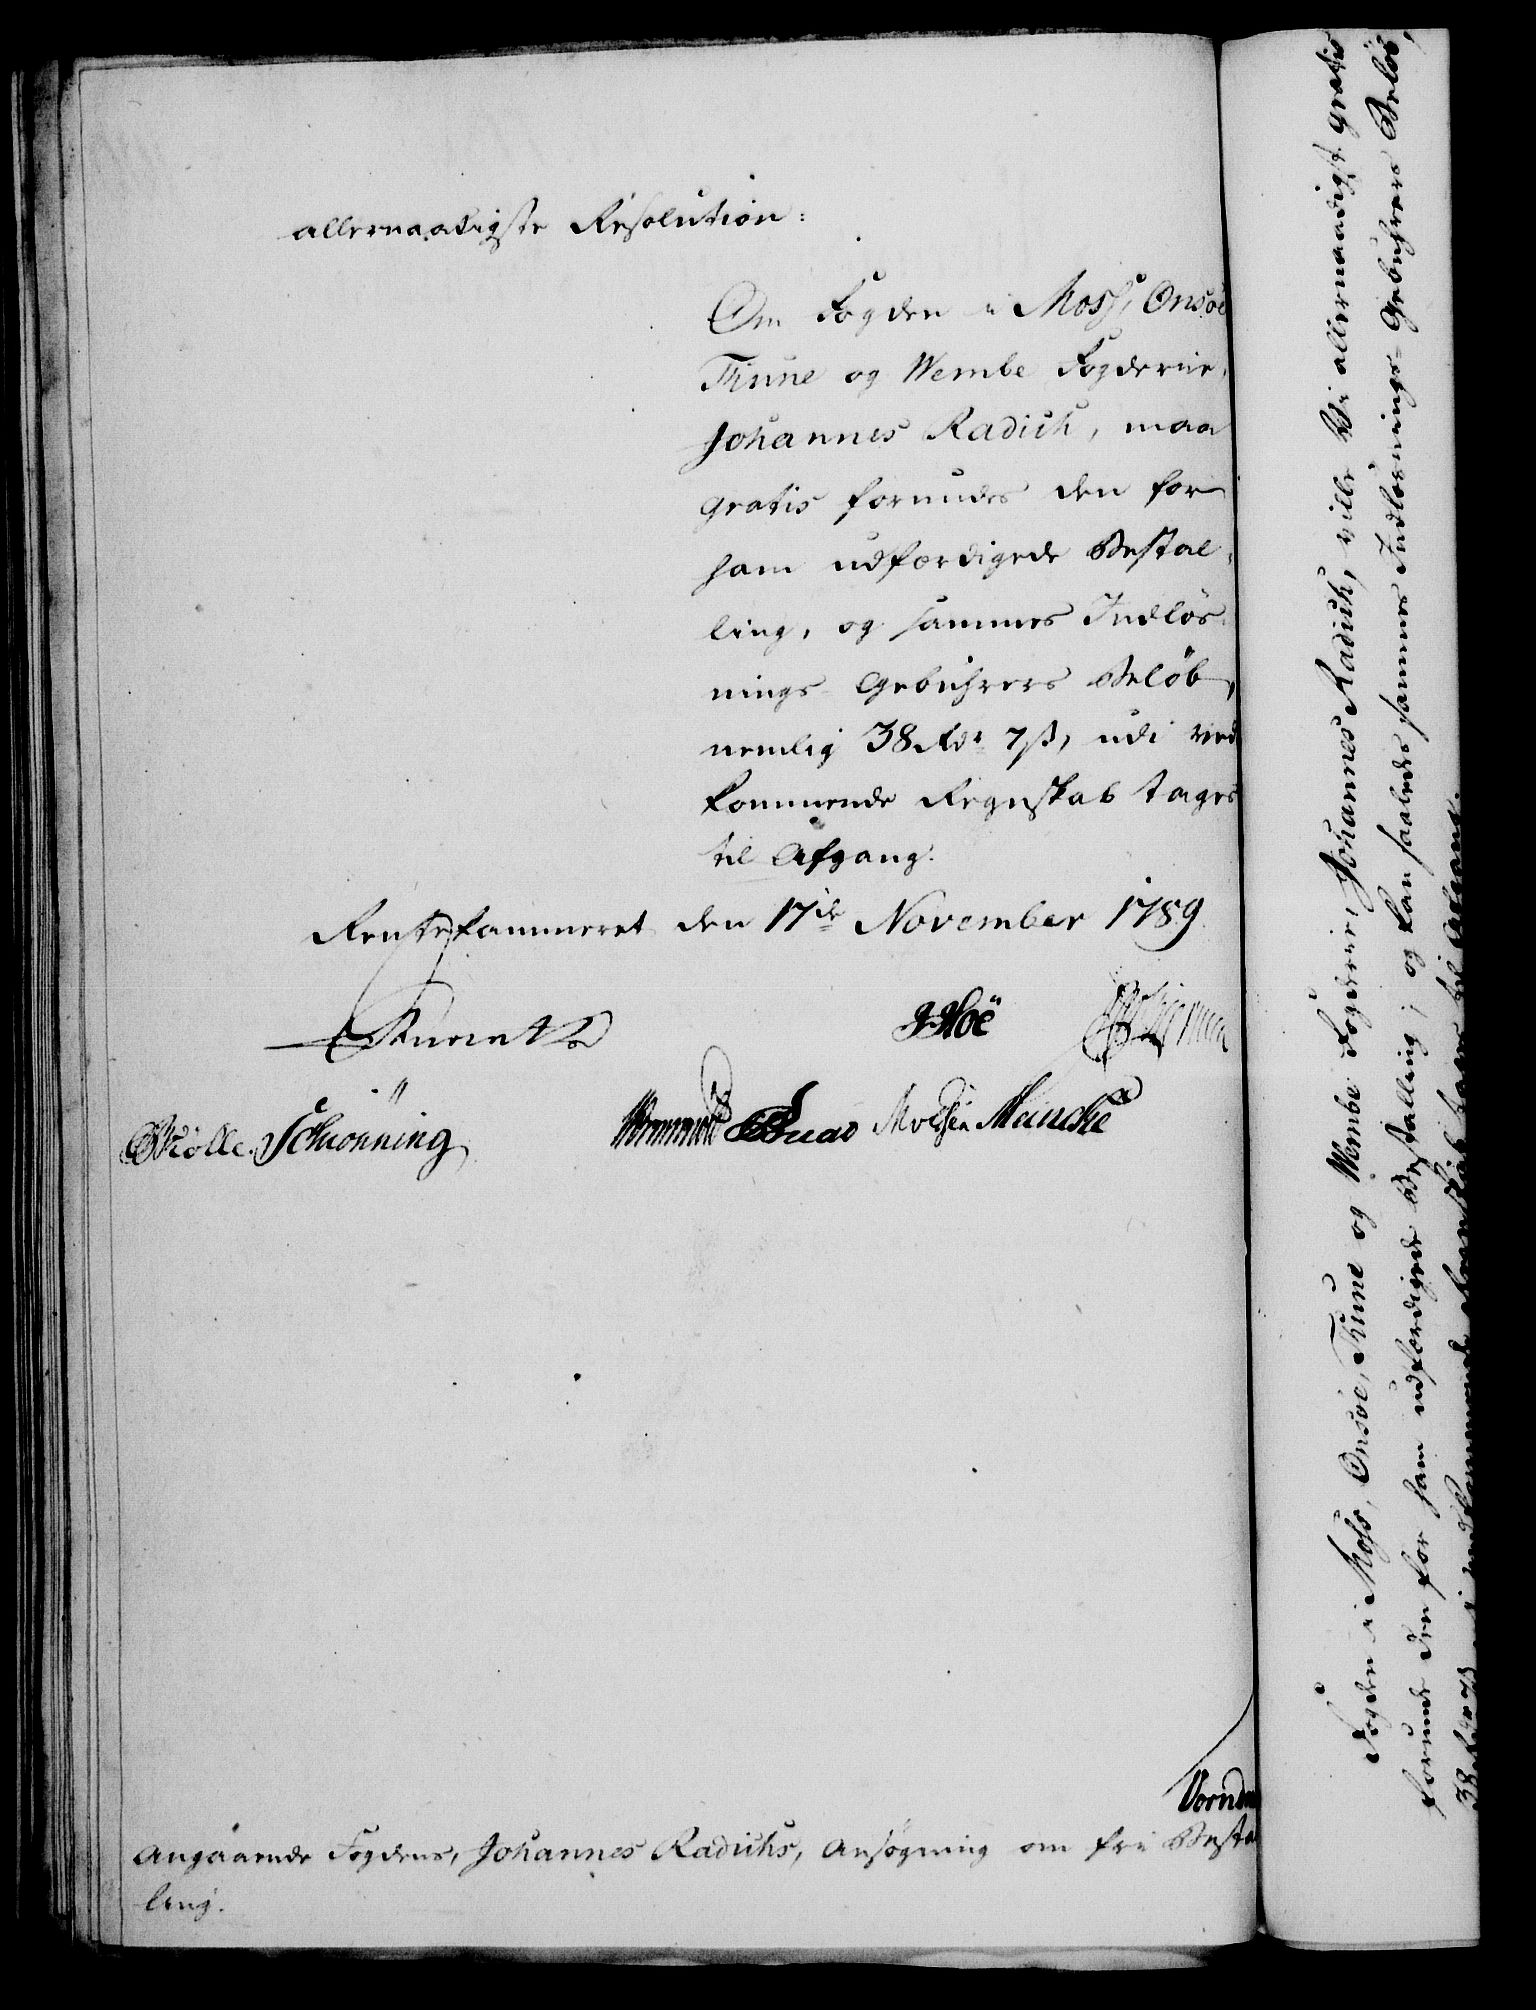 allernaadigste Resolution:
Om Fogden i Moss, Onsøe
Thune og Wembe Fogderie,
Johannes Radich, maa
gratis forundes den for
ham udfærdigede Bestal-
ling, og sammes Indløs-
nings Gebuhrers Beløb,
nemlig 38 Rdr 7 ß, udi ved
kommende Regnskab tages
til Afgang.
Rentekammeret den 17de November 1789
J. Hoë
Schiönning
Meincke
Angaaende Fogdens, Johannes Radichs, Ansøgning om fri Bestal
ling.
Fogden i Moss, Onsøe, Thune og Wembe Fogderie, Johannes Radich, ville Vi allernaadigst gratis
forunde den for ham udfærdigede Bestalling; og kan saaledes sammes Indløsnings-Gebuhrers Beløb,
38 Rdr 7 ß, udi vedkommende Regnskab tages til Afgang.